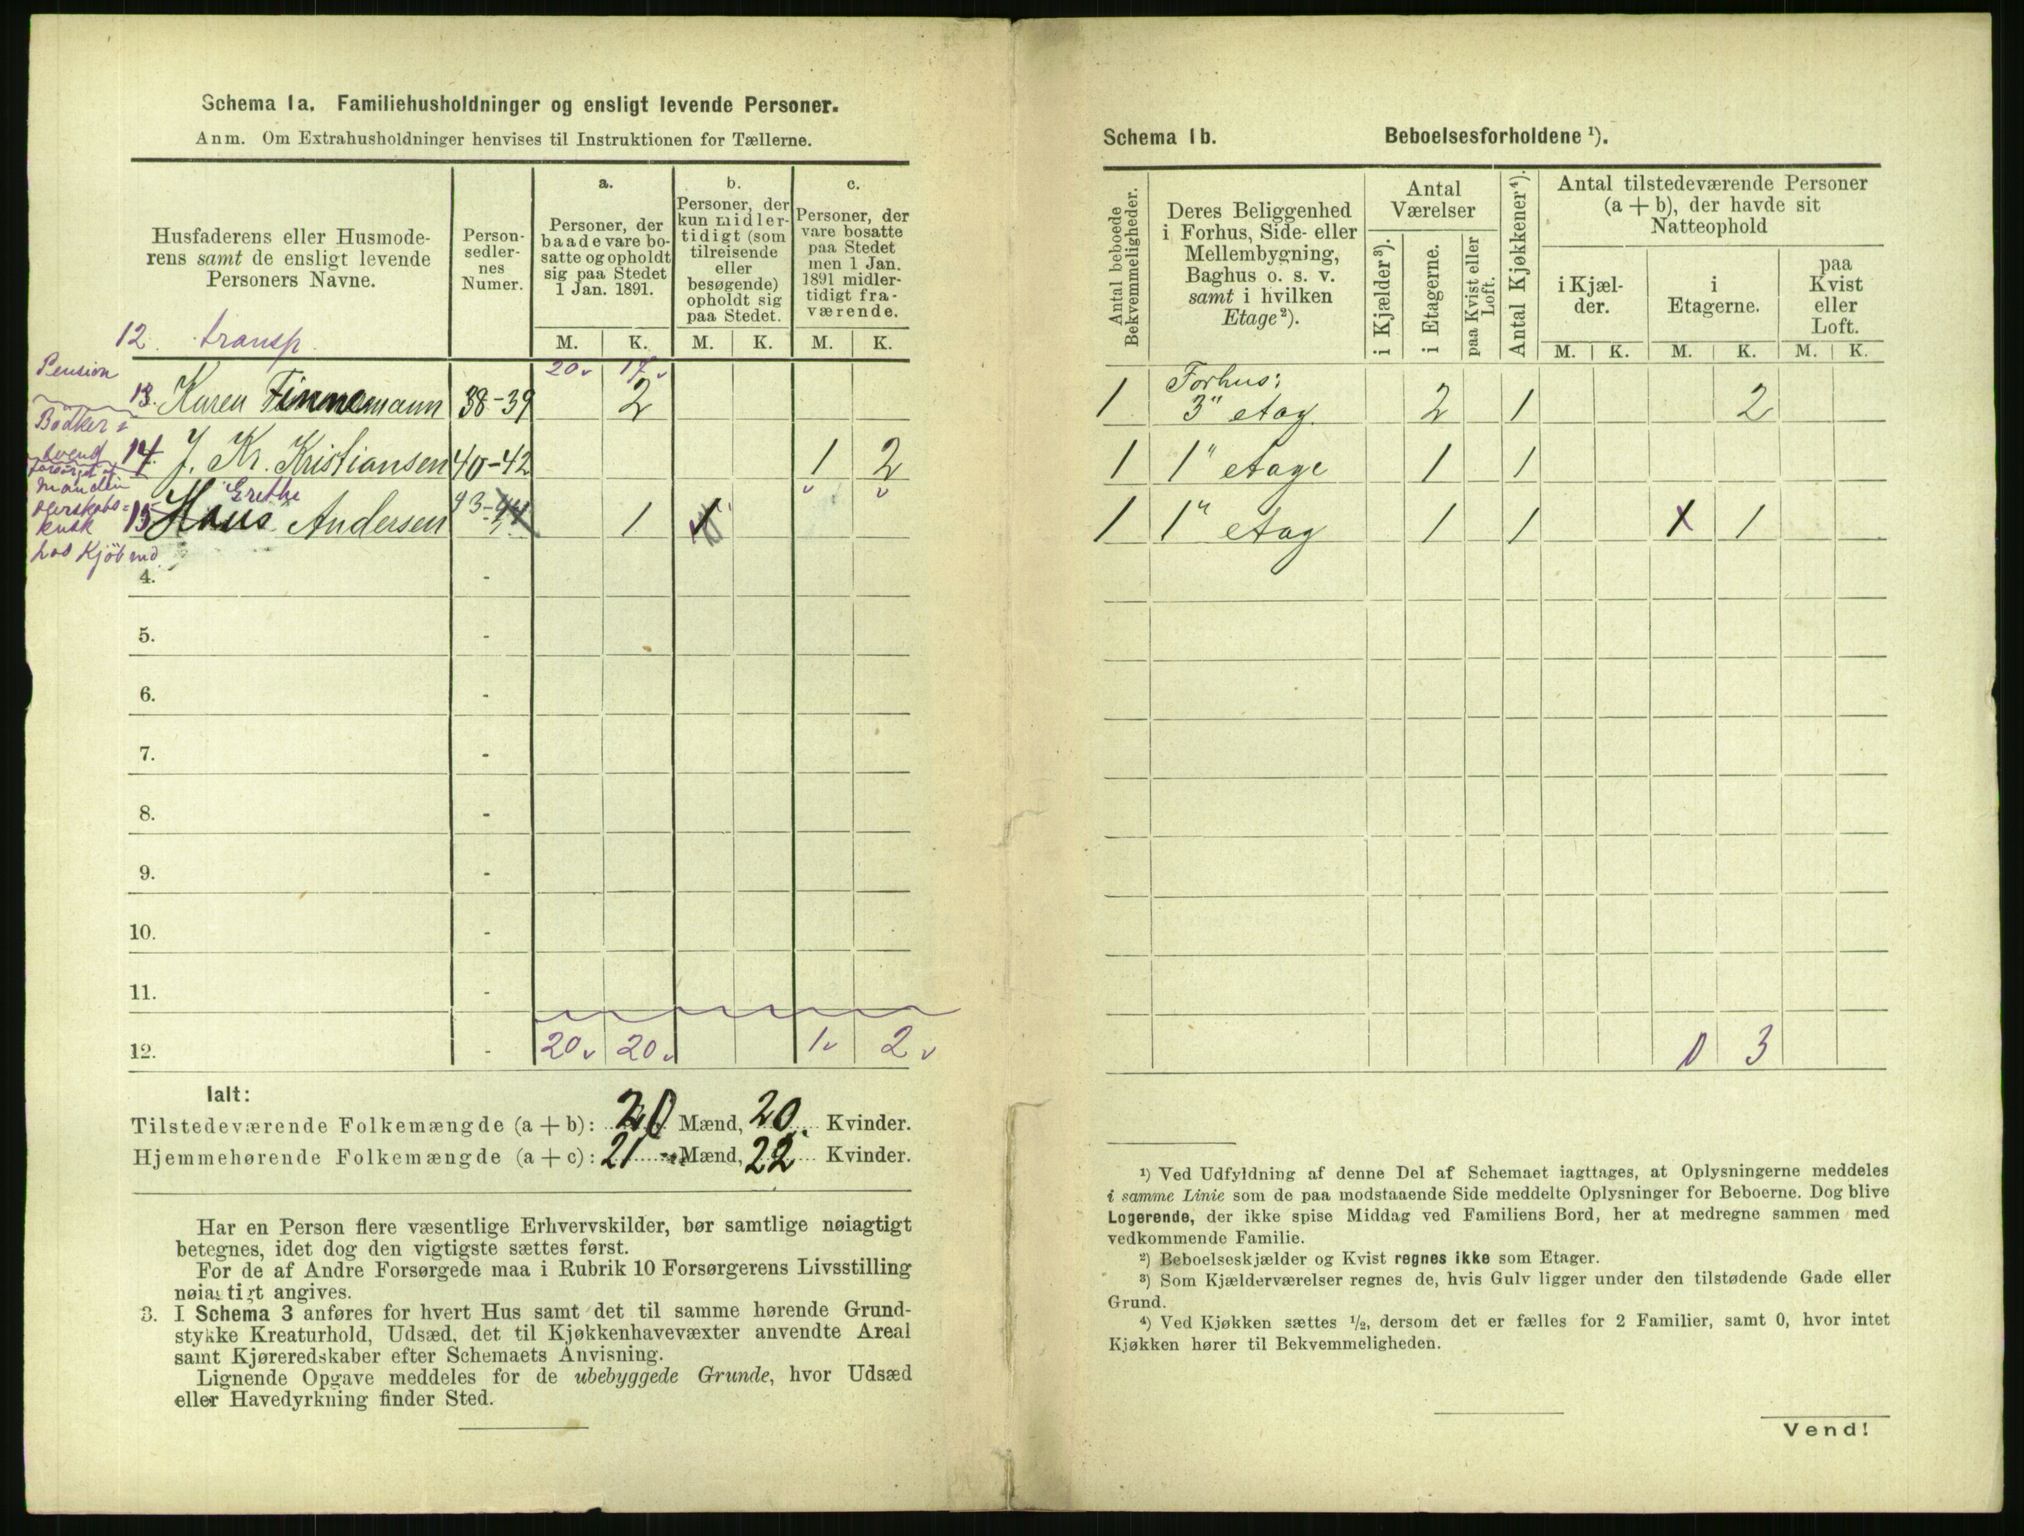 Schema 1a. Familiehusholdninger og ensligt levende Personer.
Anm. Om Extrahusholdninger henvises til Instruktionen for Tællerne.
Husfaderens eller Husmode-
rens samt de ensligt levende
Personers Navne.
Person-
sedler-
nes
Numer.
a.
Personer, der
baade vare bo-
satte og opholdt
sig paa Stedet
1 Jan. 1891.
b.
Personer, der
kun midler-
tidigt (som
tilreisende
eller
besøgende)
opholdt sig
paa Stedet.
c.
Personer, der
vare bosatte
paa Stedet
men 1 Jan.
1891 midler-
tidigt fra-
værende.
M. K. M. K. M. K.
12. transp.
20 17
Pension
13. Karen Finnemann 38-39 2
Bødker
svend 14. J. Kr. Kristiansen 40-42 1 2
Manden
Grethe
15 Hans Andersen 43-44 1 1
kusk
hos Kjøbmd.
4. -
5. -
6. -
7. -
8. -
9. -
10. -
11. -
12. - 20 20 1 2
Ialt:
Tilstedeværende Folkemængde (a + b): 20 Mænd, 20 Kvinder.
Hjemmehørende Folkemængde (a + c): 21 Mænd, 22 Kvinder.
Har en Person flere væsentlige Erhvervskilder, bør samtlige nøiagtigt
betegnes, idet dog den vigtigste sættes først.
For de af Andre Forsørgede maa i Rubrik 10 Forsørgerens Livsstilling
nøiagtigt angives.
3. I Schema 3 anføres for hvert Hus samt det til samme hørende Grund-
stykke Kreaturhold, Udsæd, det til Kjøkkenhavevæxter anvendte Areal
samt Kjøreredskaber efter Schemaets Anvisning.
Lignende Opgave meddeles for de ubebyggede Grunde, hvor Udsæd
eller Havedyrkning finder Sted.
Schema 1b. Beboelsesforholdene ¹).
Antal beboede
Bekvemmeligheder.
Deres Beliggenhed
i Forhus, Side- eller
Mellembygning,
Baghus o. s. v.
samt i hvilken
Etage²).
Antal
Værelser
i Kjælder³).
i Etagerne.
paa Kvist eller
Loft.
Antal Kjøkkener⁴).
Antal tilstedeværende Personer
(a + b), der havde sit
Natteophold
i Kjæl-
der.
i
Etagerne.
paa
Kvist
eller
Loft.
M. K. M. K. M. K.
Forhus:
1 3" etag 2 1 2
1 1" etage 1 1
1 1" etag 1 1 1 1
0 3
¹) Ved Udfyldning af denne Del af Schemaet iagttages, at Oplysningerne meddeles
i samme Linie som de paa modstaaende Side meddelte Oplysninger for Beboerne. Dog blive
Logerende, der ikke spise Middag ved Familiens Bord, her at medregne sammen med
vedkommende Familie.
²) Beboelseskjælder og Kvist regnes ikke som Etager.
³) Som Kjælderværelser regnes de, hvis Gulv ligger under den tilstødende Gade eller
Grund.
⁴) Ved Kjøkken sættes ½, dersom det er fælles for 2 Familier, samt 0, hvor intet
Kjøkken hører til Bekvemmeligheden.
Vend!